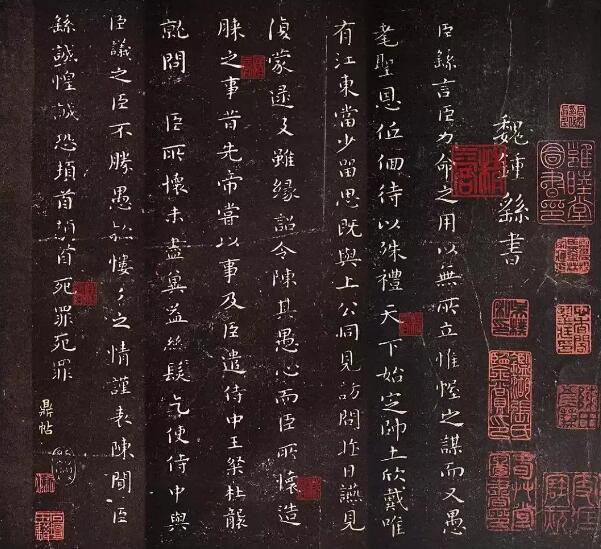 魏鍾繇書
臣繇言臣力命之用以無所立惟幄之謀而又愚
耄聖恩低佪待以殊禮天下始定帥土欣戴唯
有江東當少留思既與上公同見訪問昨日疏見
復蒙逮及雖緣詔令陳其愚心而臣所懷造
膝之事昔先帝嘗以事及臣遣侍中王粲杜襲
就問臣所懷未盡冀益絲髮乞使侍中與
臣議之臣不勝愚款慺慺之情謹表陳聞臣
繇誠惶誠恐頓首頓首死罪死罪
鼎帖